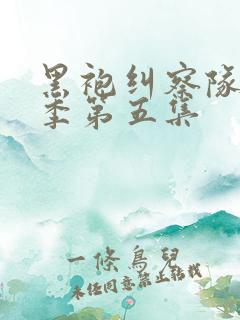 黑袍纠察队
季第五集
一條鳥兒
未经同意禁止转载